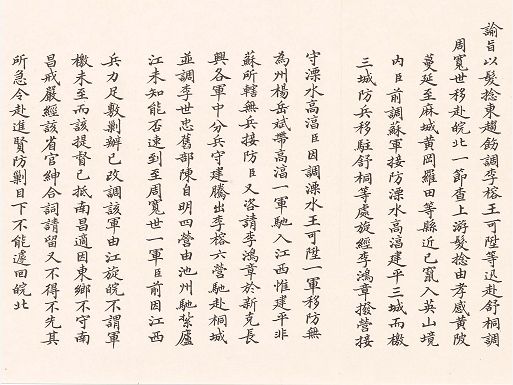 諭旨以髮捻東趨飭調李榕王可陞等迅赴舒桐調
周寬世移赴皖北一節查上游髮捻由孝感黃陂
蔓延至麻城黃岡羅田等縣近已竄入英山境
內臣前調蘇軍接防溧水高淳建平三城而檄
三城防兵移駐舒桐等處旋經李鴻章撥營接
守溧水高淳臣因調溧水王可陞一軍移防無
為州楊岳斌帶高淳一軍馳入江西惟建平非
蘇所轄無兵接防臣又咨請李鴻章於新克長
興各軍中分兵守建騰出李榕六營馳赴桐城
並調李世忠舊部陳自明四營由池州馳紮廬
江未知能否速到至周寬世一軍臣前因江西
兵力足敷剿辦已改調該軍由江旋皖不謂軍
檄未至而該提督已抵南昌適因東鄉不守南
昌戒嚴經該省官紳合詞請留又不得不先其
所急令赴進賢防剿目下不能遽回皖北